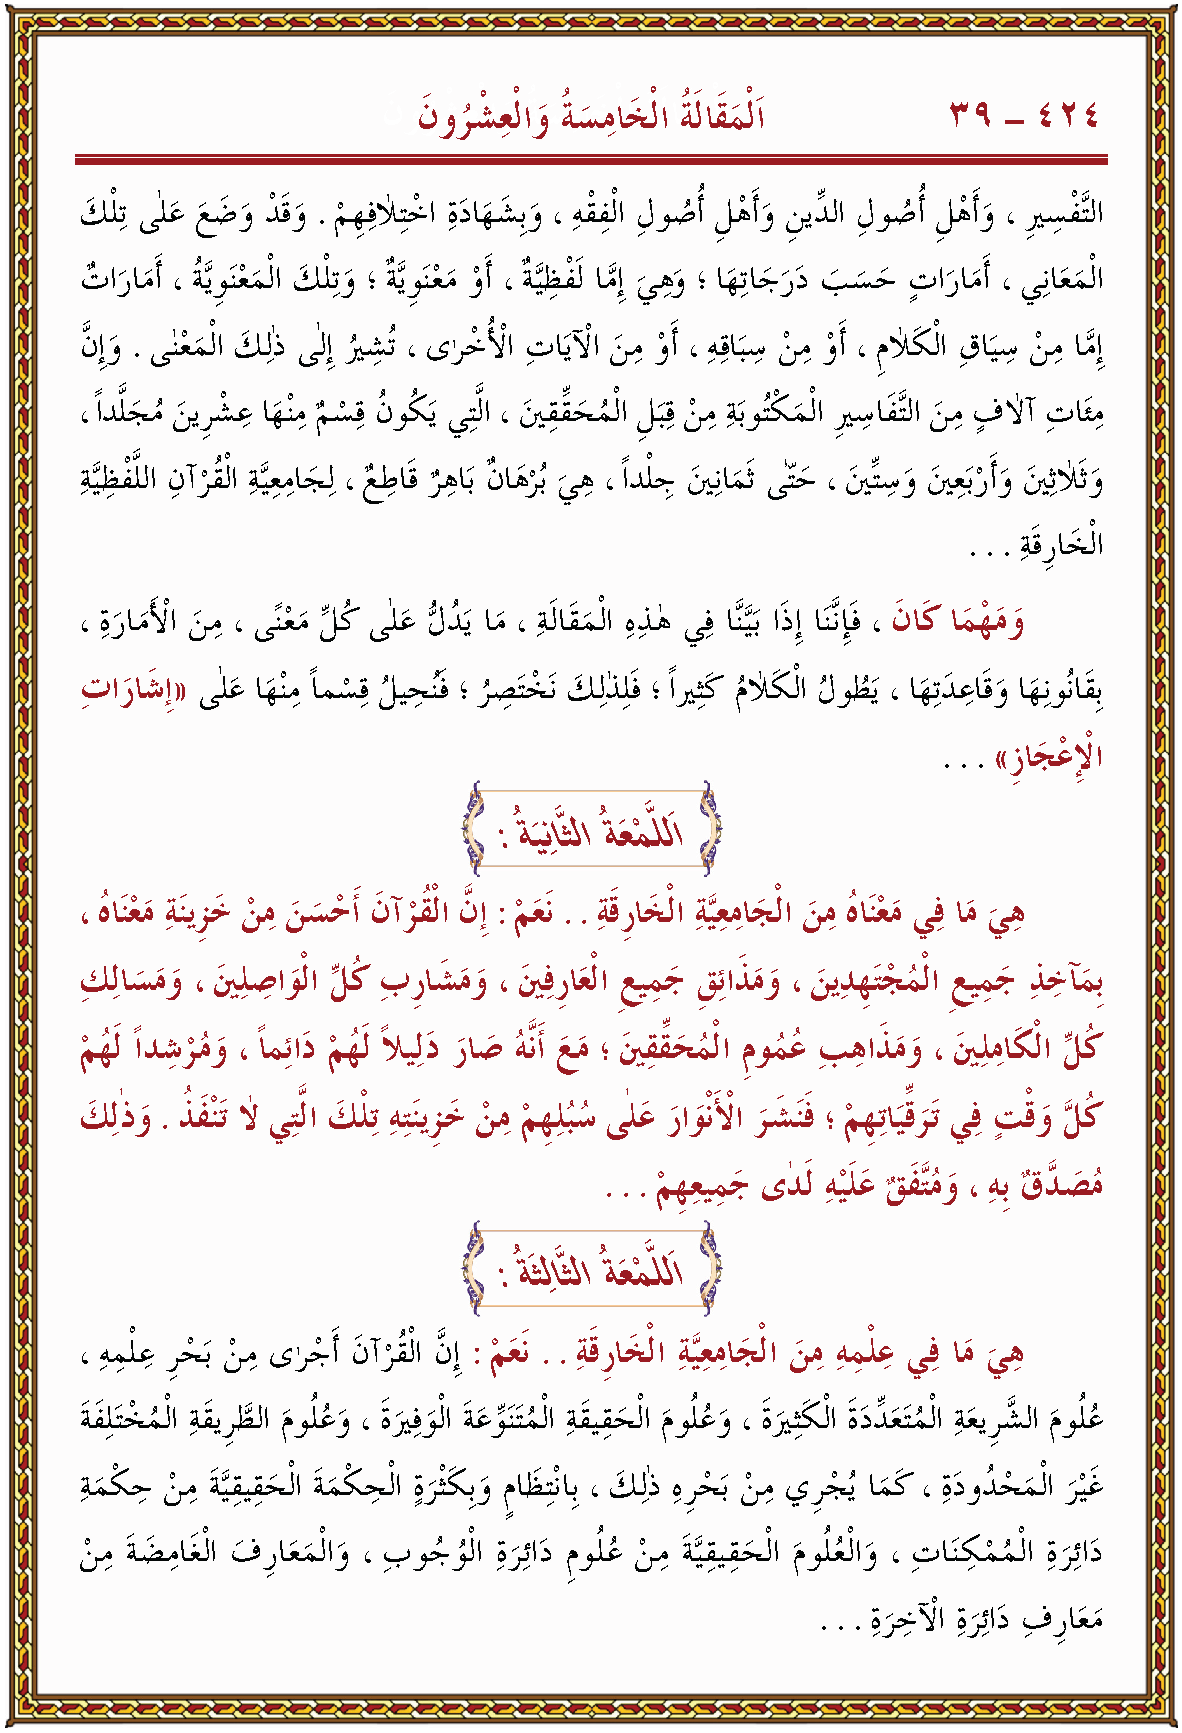 ٤٢٤ – ٣٩ اَلْمَقَالَةُ الْخَامِسَةُ وَالْعِشْرُونَ
التَّفْسِيرِ ، وَأَهْلِ أُصُولِ الدِّينِ وَأَهْلِ أُصُولِ الْفِقْهِ ، وَبِشَهَادَةِ اخْتِلاٰفِهِمْ . وَقَدْ وَضَعَ عَلٰى تِلْكَ
الْمَعَانِي ، أَمَارَاتٍ حَسَبَ دَرَجَاتِهَا ؛ وَهِيَ إِمَّا لَفْظِيَّةٌ ، أَوْ مَعْنَوِيَّةٌ ؛ وَتِلْكَ الْمَعْنَوِيَّةُ ، أَمَارَاتٌ
إِمَّا مِنْ سِيَاقِ الْكَلاٰمِ ، أَوْ مِنْ سِبَاقِهِ ، أَوْ مِنَ الْآيَاتِ الْأُخْرٰى ، تُشِيرُ إِلٰى ذٰلِكَ الْمَعْنٰى . وَإِنَّ
مِئَاتِ آلاٰفٍ مِنَ التَّفَاسِيرِ الْمَكْتُوبَةِ مِنْ قِبَلِ الْمُحَقِّقِينَ ، الَّتِي يَكُونُ قِسْمٌ مِنْهَا عِشْرِينَ مُجَلَّداً ،
وَثَلاٰثِينَ وَأَرْبَعِينَ وَسِتِّينَ ، حَتّٰى ثَمَانِينَ جِلْداً ، هِيَ بُرْهَانٌ بَاهِرٌ قَاطِعٌ ، لِجَامِعِيَّةِ الْقُرْآنِ اللَّفْظِيَّةِ
الْخَارِقَةِ . . .
وَمَهْمَا كَانَ ، فَإِنَّنَا إِذَا بَيَّنَّا فِي هٰذِهِ الْمَقَالَةِ ، مَا يَدُلُّ عَلٰى كُلِّ مَعْنًى ، مِنَ الْأَمَارَةِ ،
بِقَانُونِهَا وَقَاعِدَتِهَا ، يَطُولُ الْكَلاٰمُ كَثِيراً ؛ فَلِذٰلِكَ نَخْتَصِرُ ؛ فَنُحِيلُ قِسْماً مِنْهَا عَلٰى «إِشَارَاتِ
الْإِعْجَازِ» . . .
اَللَّمْعَةُ الثَّانِيَةُ :
هِيَ مَا فِي مَعْنَاهُ مِنَ الْجَامِعِيَّةِ الْخَارِقَةِ . . نَعَمْ : إِنَّ الْقُرْآنَ أَحْسَنَ مِنْ خَزِينَةِ مَعْنَاهُ ،
بِمَآخِذِ جَمِيعِ الْمُجْتَهِدِينَ ، وَمَذَائِقِ جَمِيعِ الْعَارِفِينَ ، وَمَشَارِبِ كُلِّ الْوَاصِلِينَ ، وَمَسَالِكِ
كُلِّ الْكَامِلِينَ ، وَمَذَاهِبِ عُمُومِ الْمُحَقِّقِينَ ؛ مَعَ أَنَّهُ صَارَ دَلِيلاً لَهُمْ دَائِماً ، وَمُرْشِداً لَهُمْ
كُلَّ وَقْتٍ فِي تَرَقِّيَاتِهِمْ ؛ فَنَشَرَ الْأَنْوَارَ عَلٰى سُبُلِهِمْ مِنْ خَزِينَتِهِ تِلْكَ الَّتِي لاٰ تَنْفَذُ . وَذٰلِكَ
مُصَدَّقٌ بِهِ ، وَمُتَّفَقٌ عَلَيْهِ لَدٰى جَمِيعِهِمْ . . .
اَللَّمْعَةُ الثَّالِثَةُ :
هِيَ مَا فِي عِلْمِهِ مِنَ الْجَامِعِيَّةِ الْخَارِقَةِ . . نَعَمْ : إِنَّ الْقُرْآنَ أَجْرٰى مِنْ بَحْرِ عِلْمِهِ ،
عُلُومَ الشَّرِيعَةِ الْمُتَعَدِّدَةَ الْكَثِيرَةَ ، وَعُلُومَ الْحَقِيقَةِ الْمُتَنَوِّعَةَ الْوَفِيرَةَ ، وَعُلُومَ الطَّرِيقَةِ الْمُخْتَلِفَةَ
غَيْرَ الْمَحْدُودَةِ ، كَمَا يُجْرِي مِنْ بَحْرِهِ ذٰلِكَ ، بِانْتِظَامٍ وَبِكَثْرَةٍ الْحِكْمَةَ الْحَقِيقِيَّةَ مِنْ حِكْمَةِ
دَائِرَةِ الْمُمْكِنَاتِ ، وَالْعُلُومَ الْحَقِيقِيَّةَ مِنْ عُلُومِ دَائِرَةِ الْوُجُوبِ ، وَالْمَعَارِفَ الْغَامِضَةَ مِنْ
مَعَارِفِ دَائِرَةِ الْآخِرَةِ . . .